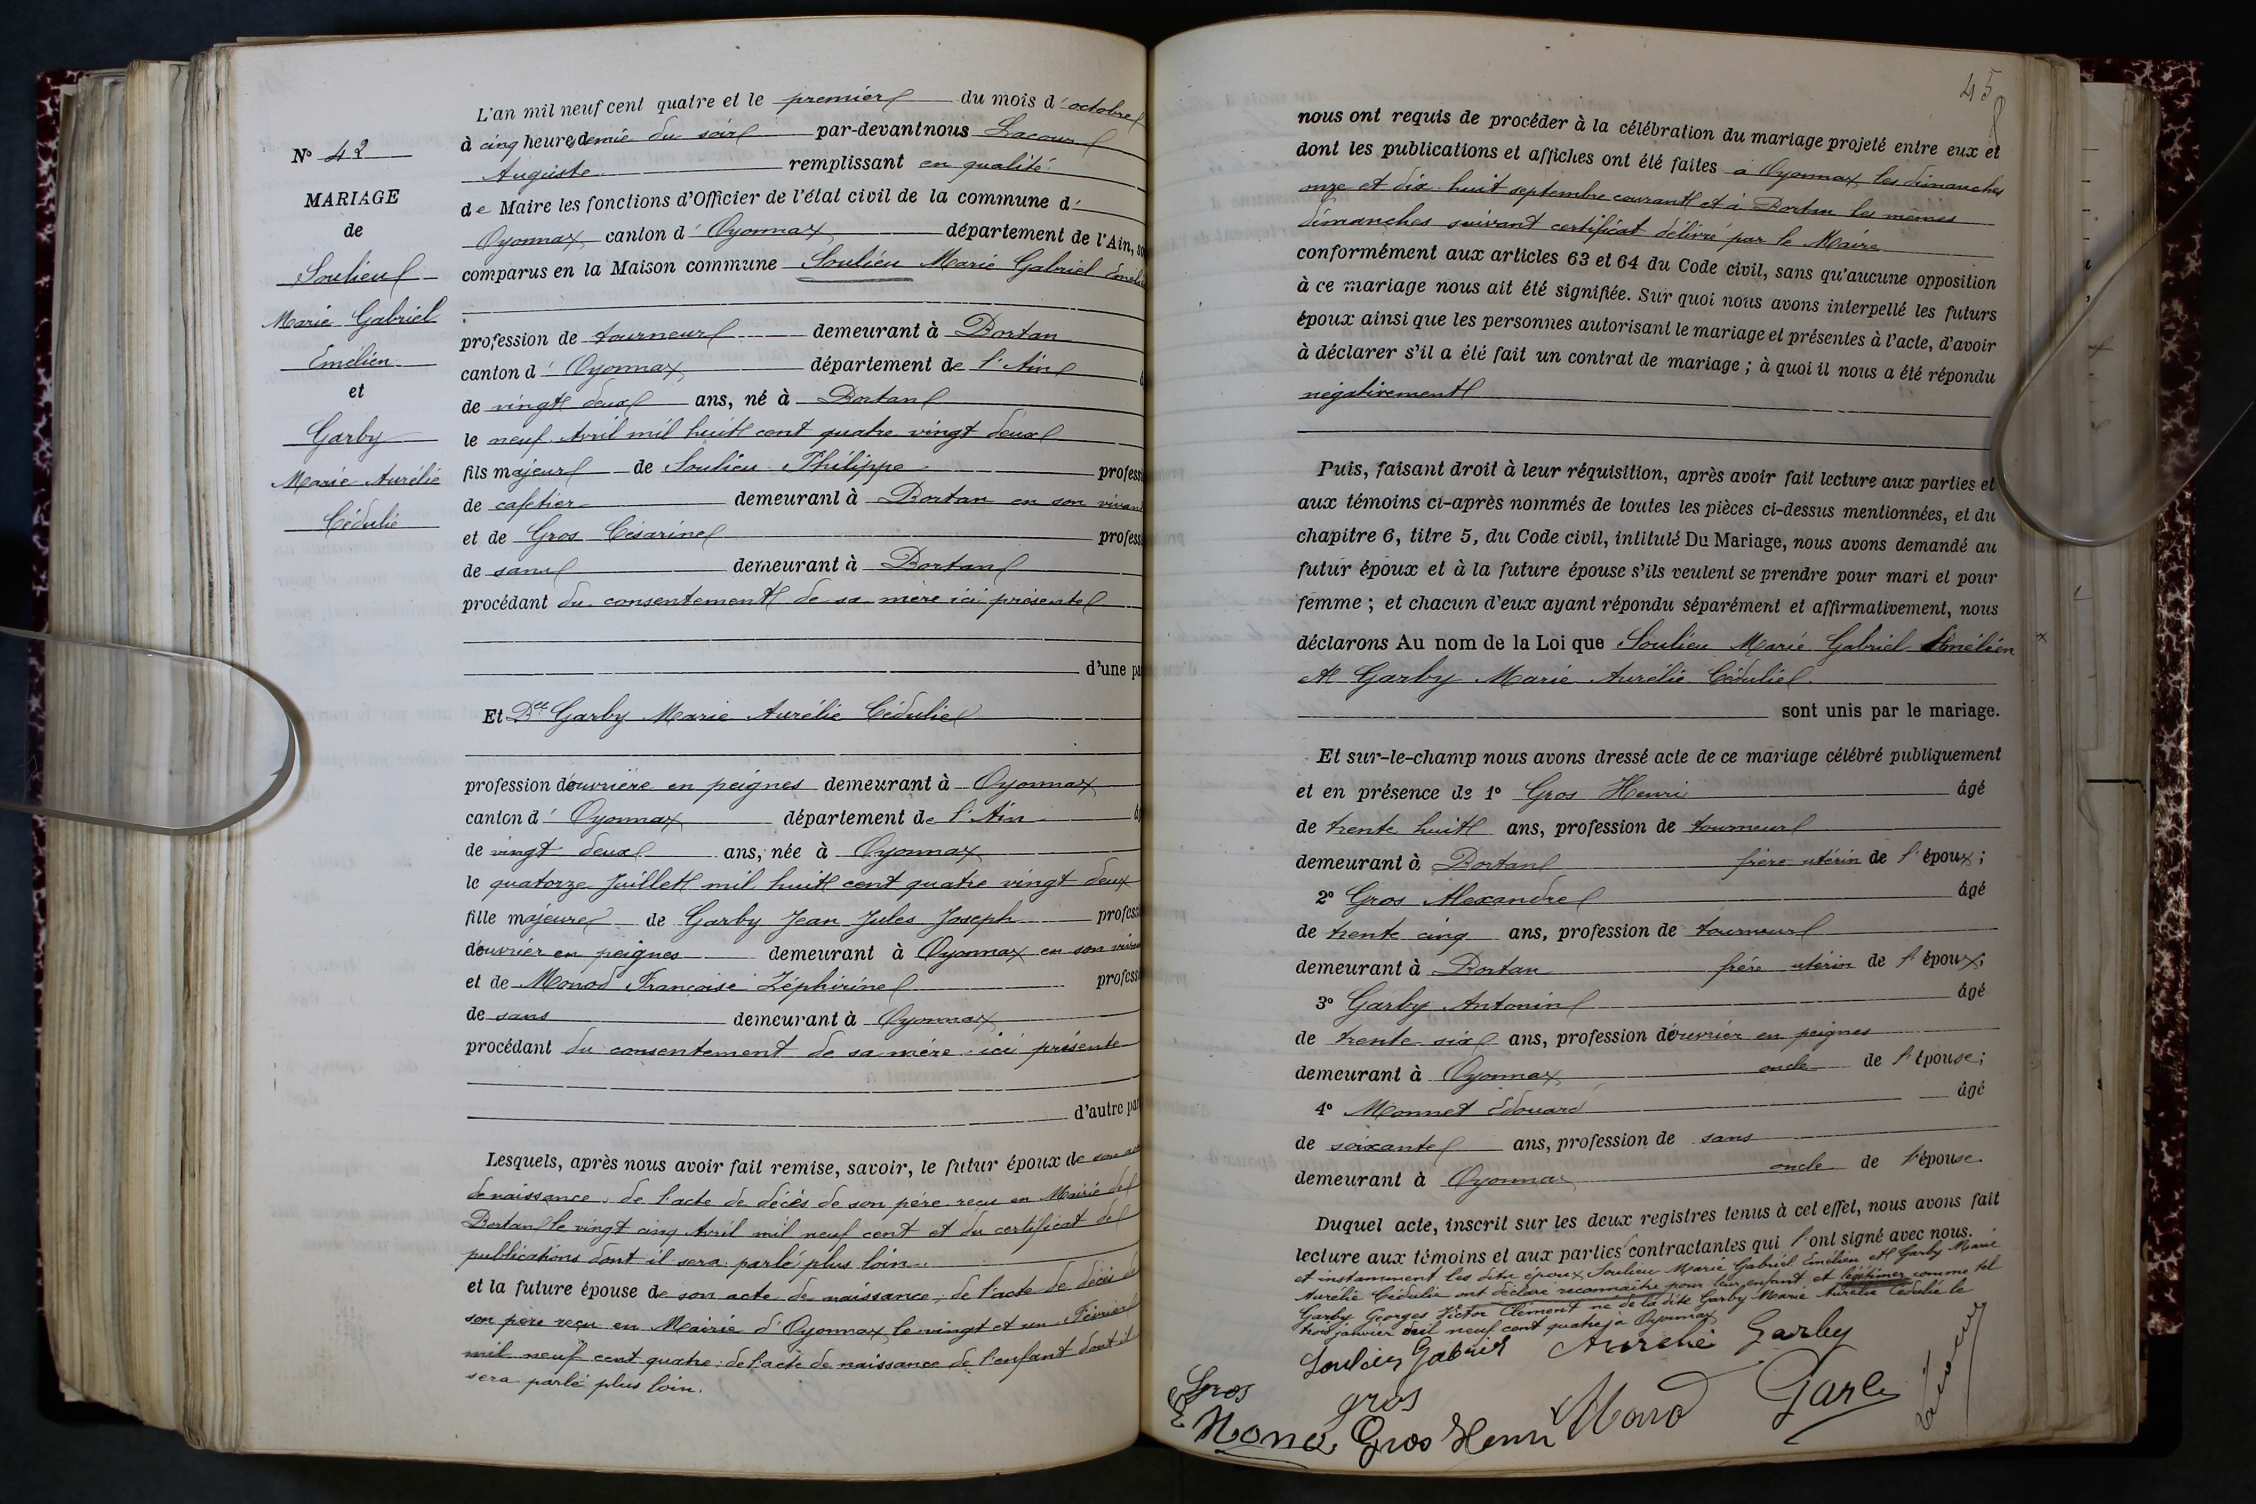 N° 42
MARIAGE
de
Soulieu
Marie Gabriel
Emélien
et
Garby
Marie Aurélie
Cédulie
L'an mil neuf cent quatre et le premier du mois d'octobre
à cinq heures demie du soir par-devant nous Lacour
Auguste remplissant en qualité
de Maire les fonctions d'Officier de l'état civil de la commune d'
Oyonnax canton d'Oyonnax département de l'Ain, so
comparus en la Maison commune Soulieu Marie Gabriel Emél
profession de tourneur demeurant à Dortan
canton d'Oyonnax département de l'Ain
de vingt deux ans, né à Dortan
le neuf Avril mil huit cent quatre vingt deux
fils majeur de Soulieu Philippe professi
de cafetier demeurant à Dortan en son vivant
et de Gros Césarine profess
de sans demeurant à Dortan
procédant du consentement de sa mère ici présente
d'une pa
Et Dlle Garby Marie Aurélie Cédulie
profession d'ouvrière en peignes demeurant à Oyonnax
canton d'Oyonnax département de l'Ain
de vingt deux ans, née à Oyonnax
le quatorze Juillet mil huit cent quatre vingt deux
fille majeure de Garby Jean Jules Joseph profess
d'ouvrier en peignes demeurant à Oyonnax en son vivan
et de Monod Françoise Zéphirine profess
de sans demeurant à Oyonnax
procédant du consentement de sa mère ici présente
d'autre par
Lesquels, après nous avoir fait remise, savoir, le futur époux de son ac
de naissance, de l'acte de décès de son père reçu en Mairie de
Dortan le vingt cinq Avril mil neuf cent et du certificat de
publications dont il sera parlé plus loin
et la future épouse de son acte de naissance, de l'acte de décès de
son père reçu en Mairie d'Oyonnax le vingt et un Février
mil neuf cent quatre, de l'acte de naissance de l'enfant dont il
sera parlé plus loin.
45
nous ont requis de procéder à la célébration du mariage projeté entre eux et
dont les publications et affiches ont été faites à Oyonnax les dimanches
onze et dix huit septembre courant et à Dortan les mêmes
dimanches suivant certificat délivré par le Maire
conformément aux articles 63 et 64 du Code civil, sans qu'aucune opposition
à ce mariage nous ait été signifiée. Sur quoi nous avons interpellé les futurs
époux ainsi que les personnes autorisant le mariage et présentes à l'acte, d'avoir
à déclarer s'il a été fait un contrat de mariage ; à quoi il nous a été répondu
négativement
Puis, faisant droit à leur réquisition, après avoir fait lecture aux parties et
aux témoins ci-après nommés de toutes les pièces ci-dessus mentionnées, et du
chapitre 6, titre 5, du Code civil, intitulé Du Mariage, nous avons demandé au
futur époux et à la future épouse s'ils veulent se prendre pour mari et pour
femme ; et chacun d'eux ayant répondu séparément et affirmativement, nous
déclarons Au nom de la Loi que Soulieu Marie Gabriel Emélien
et Garby Marie Aurélie Cédulie
sont unis par le mariage.
Et sur-le-champ nous avons dressé acte de ce mariage célébré publiquement
et en présence de 1° Gros Henri âgé
de trente huit ans, profession de tourneur
demeurant à Dortan frère utérin de l'époux ;
2° Gros Alexandre âgé
de trente cinq ans, profession de tourneur
demeurant à Dortan frère utérin de l'époux ;
3° Garby Antonin âgé
de trente six ans, profession d'ouvrier en peignes
demeurant à Oyonnax oncle de l'épouse ;
4° Monnet Edouard âgé
de soixante ans, profession de sans
demeurant à Oyonnax oncle de l'épouse.
Duquel acte, inscrit sur les deux registres tenus à cet effet, nous avons fait
lecture aux témoins et aux parties contractantes qui l'ont signé avec nous.
et instamment les dits époux Soulieu Marie Gabriel Emélien et Garby Marie
Aurélie Cédulie ont déclaré reconnaître pour leur enfant et légitimer comme tel
Garby Georges Victor Clément né de la dite Garby Marie Aurélie Cédulie le
trois janvier mil neuf cent quatre à Oyonnax
Soulieu Gabriel Aurélie Garby
Gros gros Monod Garby
Gros Henri